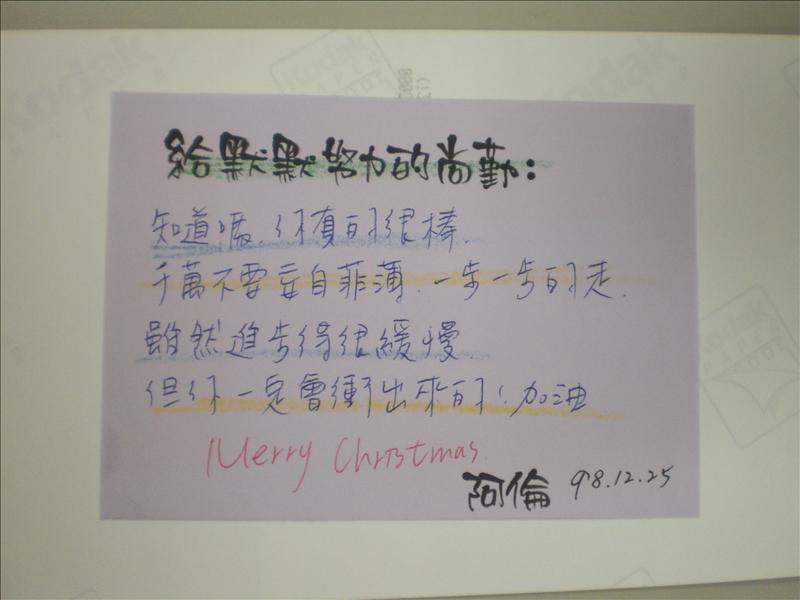 給默默努力的尚勤：
知道嗎、你真的很棒、
千萬不要妄自菲薄、一步一步的走、
雖然進步得很緩慢、
但你一定會衝出來的！加油
Merry Christmas
阿倫 98.12.25
Kodak
Kodak